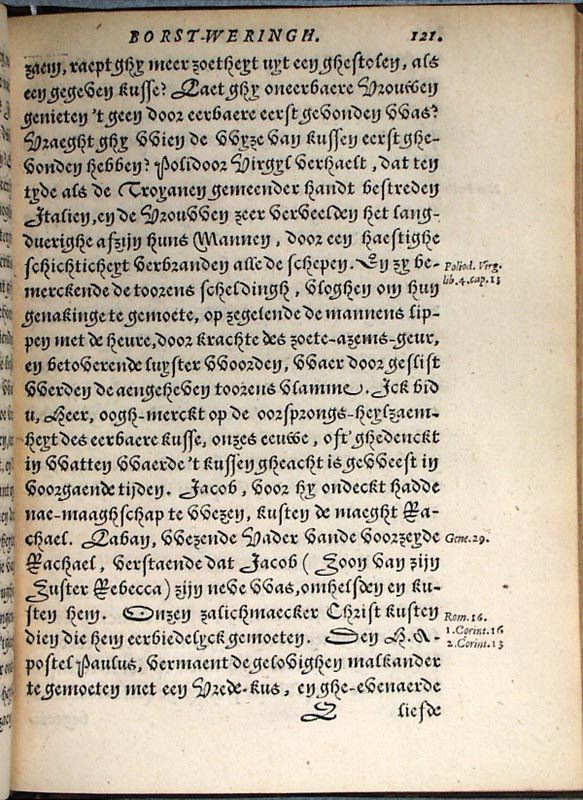 BORST-WERINGH. 121.
zaem, raept ghy meer zoetheyt uyt een ghestolen, als
een gegeven kusse? Laet ghy oneerbaere Vrouwen
genieten 't geen door eerbaere eerst gevonden was?
Vraeght ghy wien de wyze van kussen eerst ghe-
vonden hebben? Polidoor Virgyl verhaelt, dat ten
tyde als de Troyanen gemeender handt bestreden
Italien, en de Vrouwen zeer verveelden het lang-
duerighe afzijn huns Mannen, door een haestighe
schichticheyt verbranden alle de schepen. En zy be-
merckende de toorens scheldingh, vloghen om hun
genakinge te gemoete, op zegelende de mannens lip-
pen met de heure, door krachte des zoete-azems-geur,
en betoverende luyster woorden, waer door geslist
werden de aengeheven toorens vlamme. Ick bid
u, Heer, oogh-merckt op de oorsprongs-heylzaem-
heyt des eerbaere kusse, onzes eeuwe, oft ghedenckt
in watten waerde 't kussen gheacht is geweest in
voorgaende tijden. Jacob, voor hy ondeckt hadde
nae-maaghschap te wezen, kusten de maeght Ra-
chael. Laban, wezende Vader vande voorzeyde
Rachael, verstaende dat Jacob ( Zoon van zijn
Zuster Rebecca) zijn neve was, omhelsden en ku-
sten hem. Onzen zalichmaecker Christ kusten
dien die hem eerbiedelyck gemoeten. Den H. A-
postel Paulus, vermaent de gelovighen malkander
te gemoeten met een Vrede-kus, en ghe-evenaerde
liefde
Poliod. Virg.
lib. 4. cap. 13
Gene. 29.
Rom. 16.
1. Corint. 16
2. Corint. 13